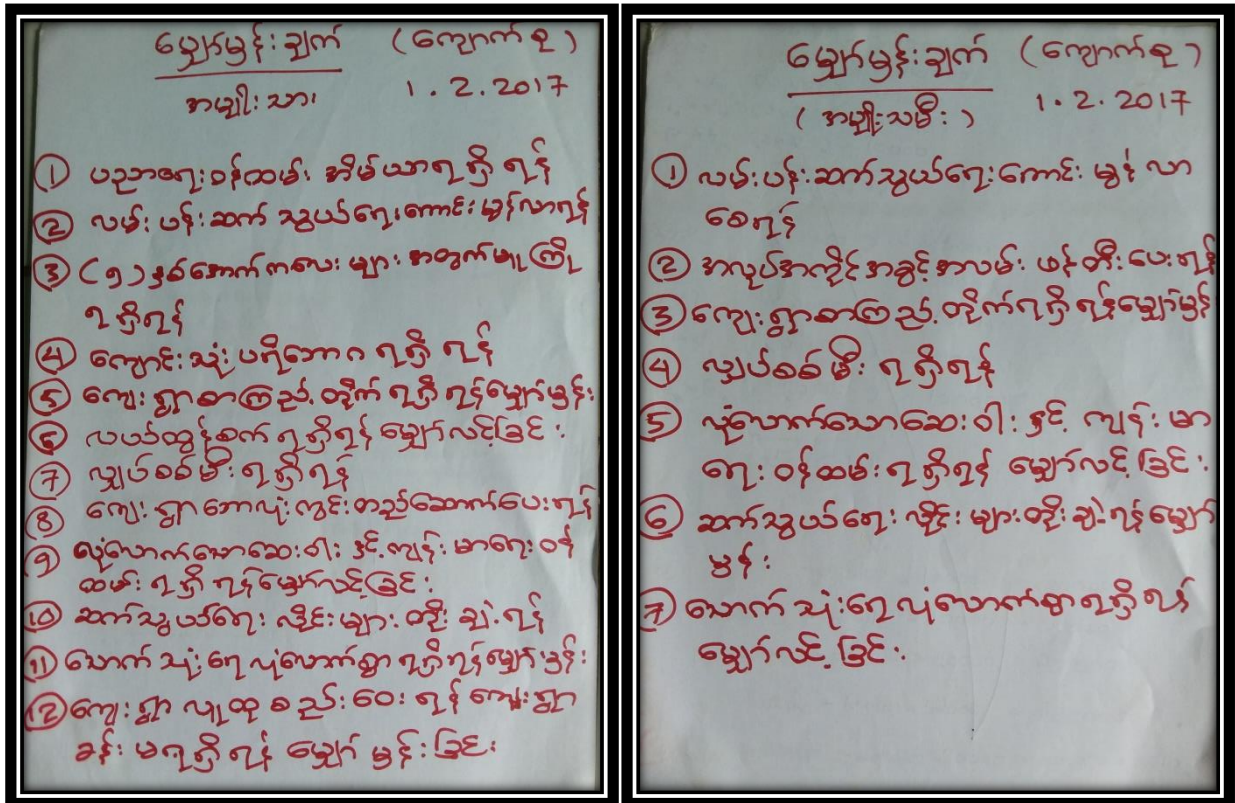 မျှော်မှန်းချက် (ကျောက်စု)
အမျိုးသား 1.2.2017
① ပညာရေးဝန်ထမ်း အိမ်ယာရရှိရန်
② လမ်းပန်းဆက်သွယ်ရေးကောင်းမွန်လာရန်
③ (၅)နှစ်အောက်ကလေးများအတွက်မူကြို
ရရှိရန်
④ ကျောင်းသုံးပရိဘောဂရရှိရန်
⑤ ကျေးရွာစာကြည့်တိုက်ရရှိရန်မျှော်မှန်း
⑥ လယ်ထွန်စက်ရရှိရန်မျှော်လင့်ခြင်း
⑦ လျှပ်စစ်မီးရရှိရန်
⑧ ကျေးရွာဘောလုံးကွင်းတည်ဆောက်ပေးရန်
⑨ လုံလောက်သောဆေးဝါးနှင့်ကျန်းမာရေးဝန်
ထမ်းရရှိရန်မျှော်လင့်ခြင်း
⑩ ဆက်သွယ်ရေးလိုင်းများတိုးချဲ့ရန်
⑪ သောက်သုံးရေလုံလောက်စွာရရှိရန်မျှော်မှန်း
⑫ ကျေးရွာလူထုစည်းဝေးရန်ကျေးရွာ
ခန်းမရရှိရန်မျှော်မှန်းခြင်း
မျှော်မှန်းချက် (ကျောက်စု)
(အမျိုးသမီး) 1.2.2017
① လမ်းပန်းဆက်သွယ်ရေးကောင်းမွန်လာ
စေရန်
② အလုပ်အကိုင်အခွင့်အလမ်းဖန်တီးပေးရန်
③ ကျေးရွာစာကြည့်တိုက်ရရှိရန်မျှော်မှန်
④ လျှပ်စစ်မီးရရှိရန်
⑤ လုံလောက်သောဆေးဝါးနှင့်ကျန်းမာ
ရေးဝန်ထမ်းရရှိရန်မျှော်လင့်ခြင်း
⑥ ဆက်သွယ်ရေးလိုင်းများတိုးချဲ့ရန်မျှော်
မှန်း
⑦ သောက်သုံးရေလုံလောက်စွာရရှိရန်
မျှော်လင့်ခြင်း